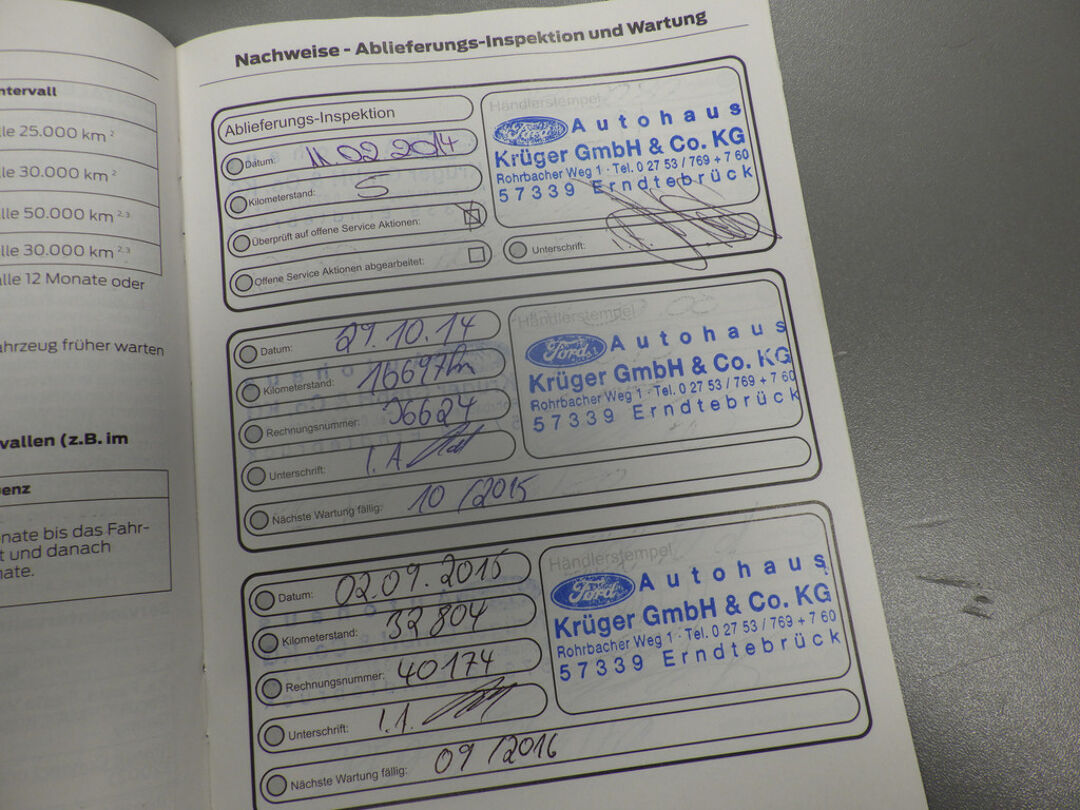 ntervall
lle 25.000 km 2
lle 30.000 km 2
lle 50.000 km 2,3
lle 30.000 km 2,3
lle 12 Monate oder
ahrzeug früher warten
vallen (z.B. im
enz
nate bis das Fahr-
t und danach
nate.
Nachweise - Ablieferungs-Inspektion und Wartung
Ablieferungs-Inspektion
Datum: 11.02.2014
Kilometerstand: 5
Überprüft auf offene Service Aktionen:
Offene Service Aktionen abgearbeitet:
Händlerstempel
Ford Autohaus
Krüger GmbH & Co. KG
Rohrbacher Weg 1 · Tel. 0 27 53 / 769 + 7 60
57339 Erndtebrück
Unterschrift:
Datum: 29.10.14
Kilometerstand: 16697km
Rechnungsnummer: 36624
Unterschrift: i.A.
Nächste Wartung fällig: 10/2015
Händlerstempel
Ford Autohaus
Krüger GmbH & Co. KG
Rohrbacher Weg 1 · Tel. 0 27 53 / 769 + 7 60
57339 Erndtebrück
Datum: 02.09.2015
Kilometerstand: 32804
Rechnungsnummer: 40174
Unterschrift:
Nächste Wartung fällig: 09/2016
Händlerstempel
Ford Autohaus
Krüger GmbH & Co. KG
Rohrbacher Weg 1 · Tel. 0 27 53 / 769 + 7 60
57339 Erndtebrück